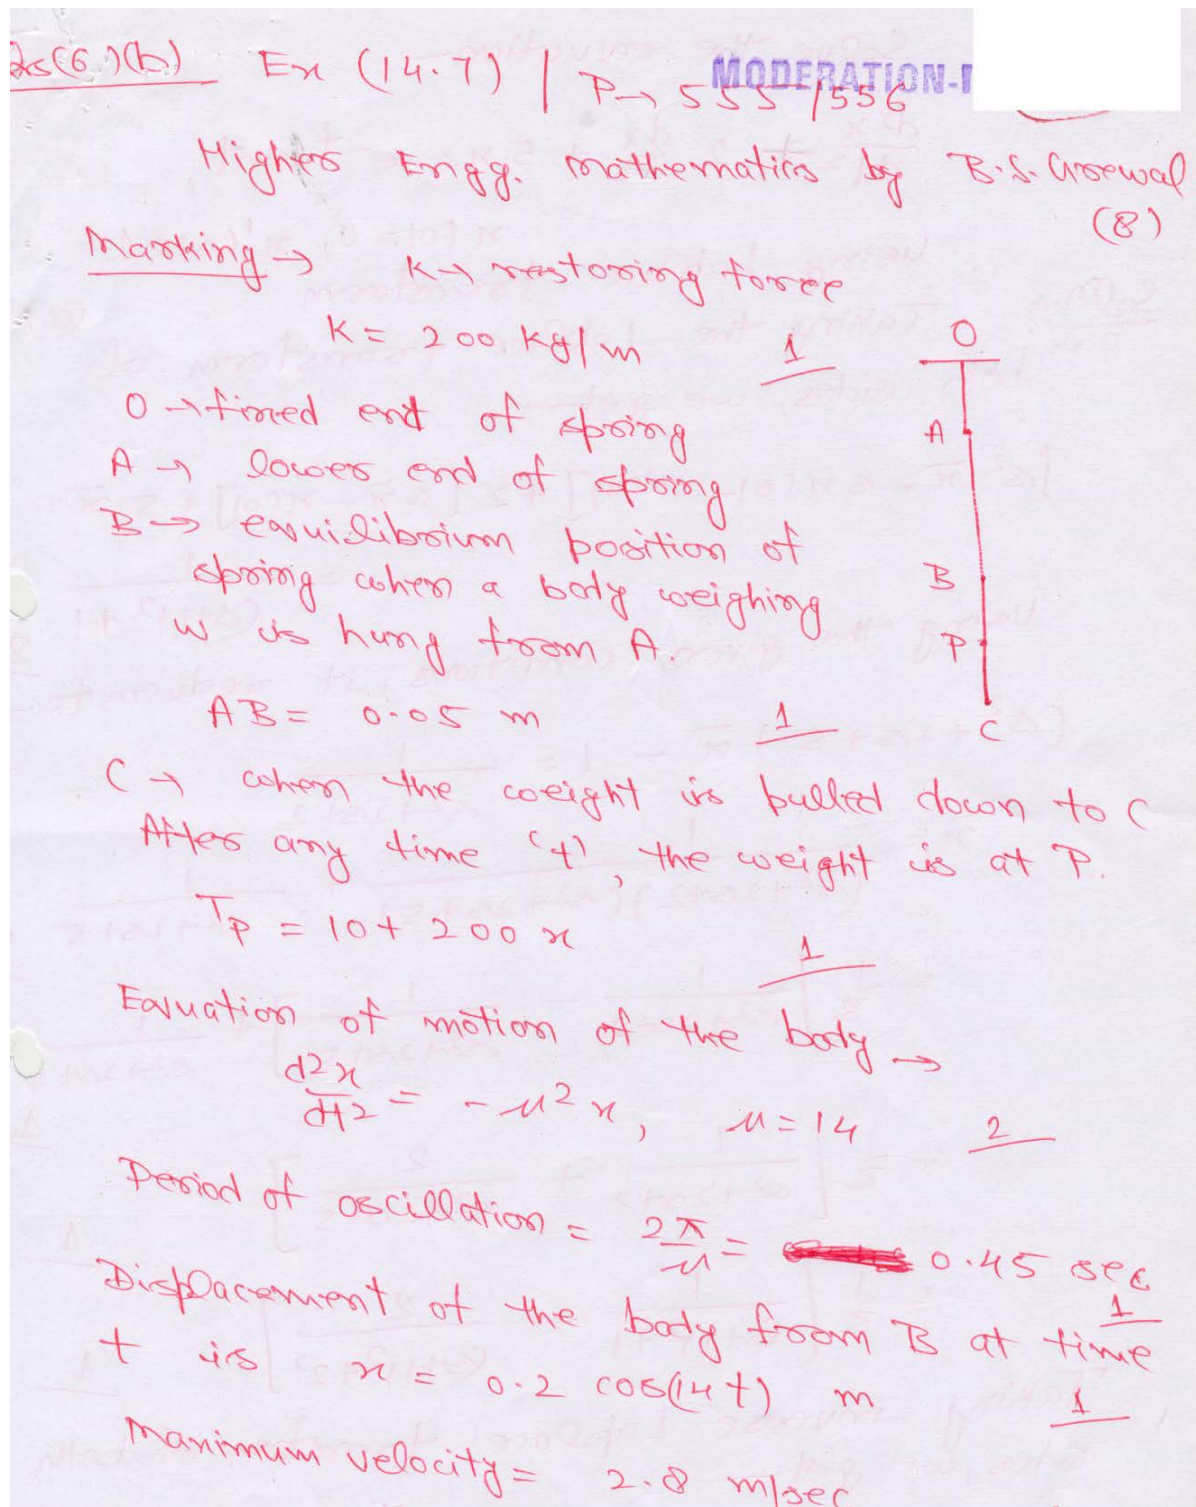 (6)(b) Ex (14.7) | P→ 555/556
MODERATION-
Higher Engg. mathematics by B.S. Grewal
(8)
Marking → K→ restoring force
K = 200 kg/m 1
O
O → fixed end of spring
A
A → lower end of spring
B → equilibrium position of
B
spring when a body weighing
P
w is hung from A.
AB = 0.05 m 1
C
C → when the weight is pulled down to C
After any time 't', the weight is at P.
Tp = 10 + 200 x
1
Equation of motion of the body →
d²x/dt² = -μ²x, μ = 14 2
Period of oscillation = 2π/μ = 0.45 sec
1
Displacement of the body from B at time
t is x = 0.2 cos(14t) m 1
Maximum velocity = 2.8 m/sec